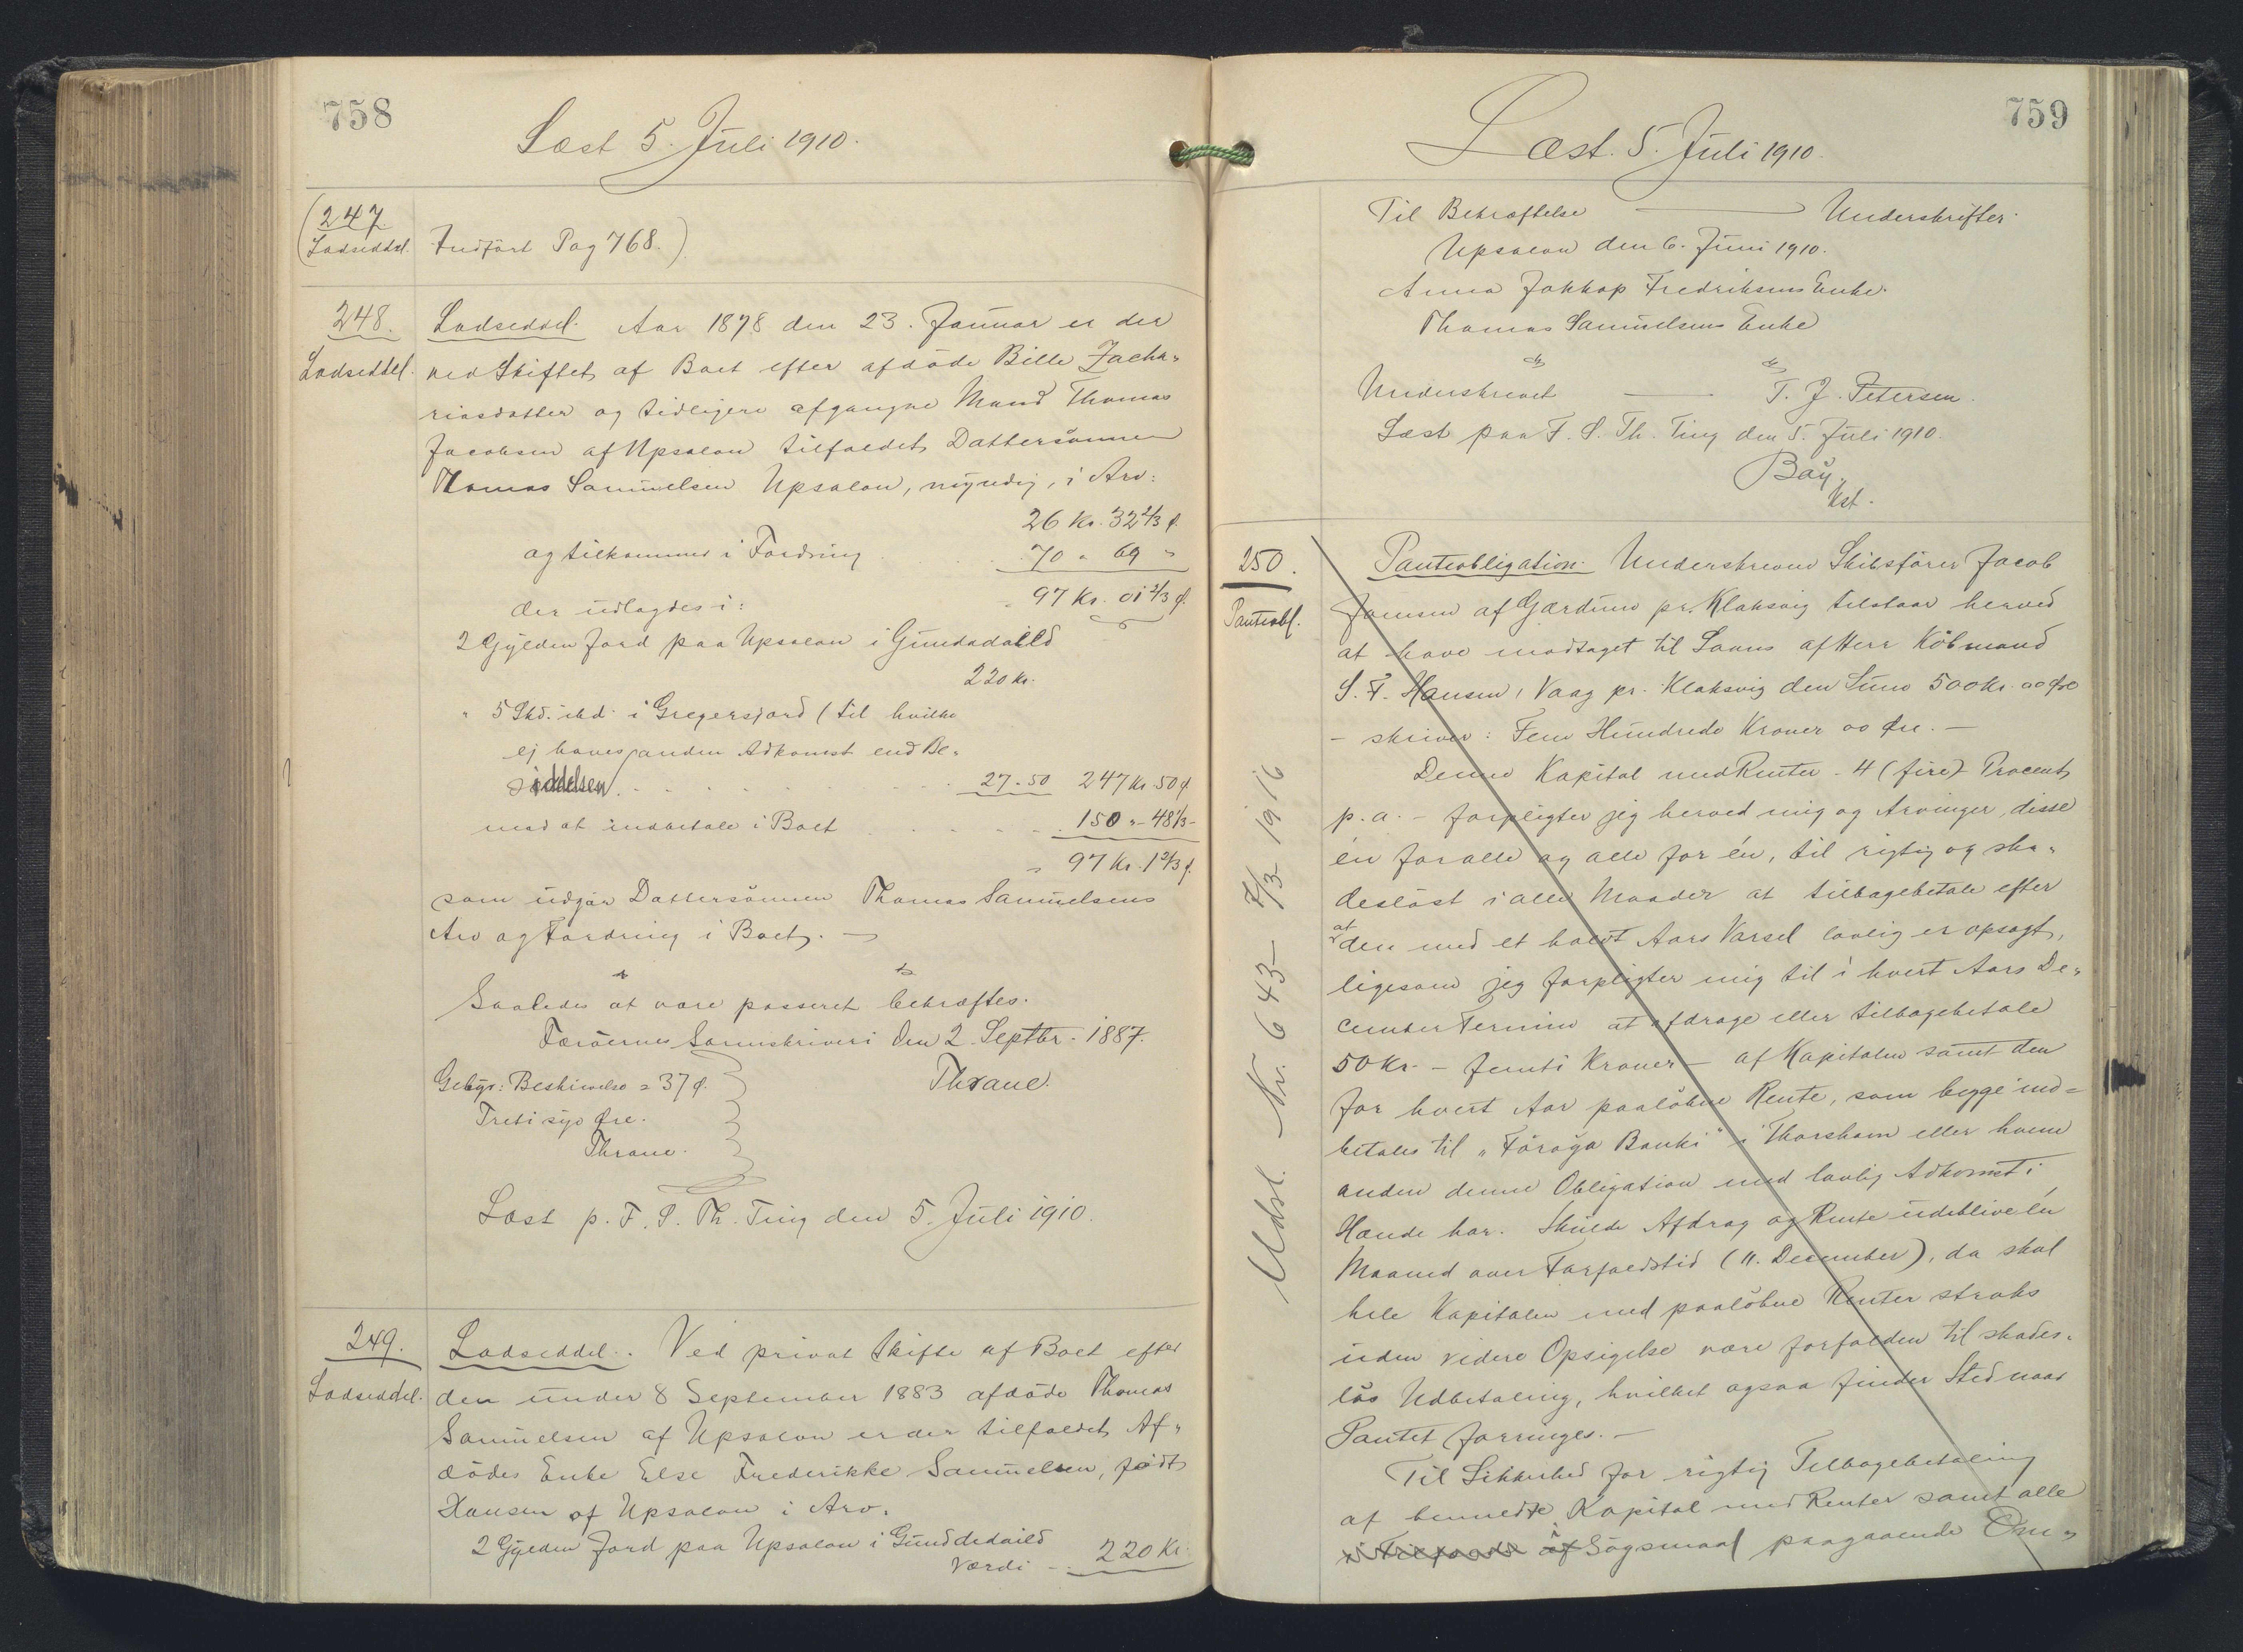 758
Læst 5. Juli 1910.
(247
Lodseddel. Indført Pag 768.)
248.
Lodseddel.
Lodseddel. Aar 1878 den 23. Januar er der
ved Skiftet af Boet efter afdöde Bille Zacha-
riasdatter og tidligere afgangne Mand Thomas
Jacobsen af Upsalon tilfaldet Dattersönnen
Thomas Samuelsen Upsalon, myndig, i Arv:
26 Kr. 32 2/3 ø.
og tilkommes i Fordring 70 " 69 "
der udlagdes i: 97 Kr. 01 2/3 ø.
2 Gylden Jord paa Upsalon i Gundadaild
220 Kr.
" 5 Skd. ibd. i Gregersjord (til hvilke
ej haves anden Adkomst end Be-
siddelsen 27-50 247 Kr. 50 ø
mod at indbetale i Boet 150 "- 48 1/3 -
97 Kr. 1 2/3 ø.
som udgör Dattersönnen Thomas Samuelsens
Arv og Fordring i Boet. —
Saaledes at være passeret bekræftes.
Færöernes Sorenskriveri den 2. Septbr. 1887.
Gebyr: Beskrivelse = 37 ø. Thrane.
Tretisyv Øre.
Thrane.
Læst p. F. S. Th. Ting den 5. Juli 1910.
249.
Lodseddel.
Lodseddel. Ved privat Skifte af Boet efter
den under 8 September 1883 afdöde Thomas
Samuelsen af Upsalon er der tilfaldet Af-
dödes Enke Else Frederikke Samuelsen, födt
Hansen af Upsalon i Arv.
2 Gylden Jord paa Upsalon i Gunddedaild
Værdi - 220 Kr.
759
Læst. 5. Juli 1910.
Til Bekræftelse — Underskrifter.
Upsalon den 6. Juni 1910.
Anna Jokkop Fredriksens Enke.
Thomas Samuelsens Enke
Underskrevet — T. J. Petersen.
Læst paa F. S. Th. Ting den 5. Juli 1910.
Bay,
Kst.
250.
Pantobl.
Udsl. Nr. 643 - 7/3 1916
Panteobligation. Underskrevne Skibsförer Jacob
Joensen af Gærdum pr. Klaksvig tilstaar herved
at have modtaget til Laans af Herr Köbmand
S. F. Hansen, Vaag pr. Klaksvig den Sum 500 Kr. 00 Øre
- skriver: Fem Hundrede Kroner 00 Øre. —
Denne Kapital med Renter - 4 (fire) Procent
p. a. - forpligter jeg herved mig og Arvinger, disse
én for alle og alle for én, til rigtig og ska-
deslöst i alle Maader at tilbagebetale efter
at den med et halvt Aars Varsel lovlig er opsagt,
ligesom jeg forpligter mig til i hvert Aars De-
cember Termin at afdrage eller tilbagebetale
50 Kr. - femti Kroner - af Kapitalen samt den
for hvert Aar paalöbne Rente, som begge ind-
betales til "Föroya Banki" i Thorshavn eller hvem
anden denne Obligation med lovlig Adkomst i
Hænde har. Skulde Afdrag og Rente udeblive én
Maaned over Forfaldstid (11. December), da skal
hele Kapitalen med paalöbne Renter straks
uden videre Opsigelse være forfalden til skades-
lös Udbetaling, hvilket ogsaa finder Sted naar
Pantet forringes. —
Til Sikkerhed for rigtig Tilbagebetaling
af bemeldte Kapital med Renter samt alle
i Sögsmaal paagaaende Om-